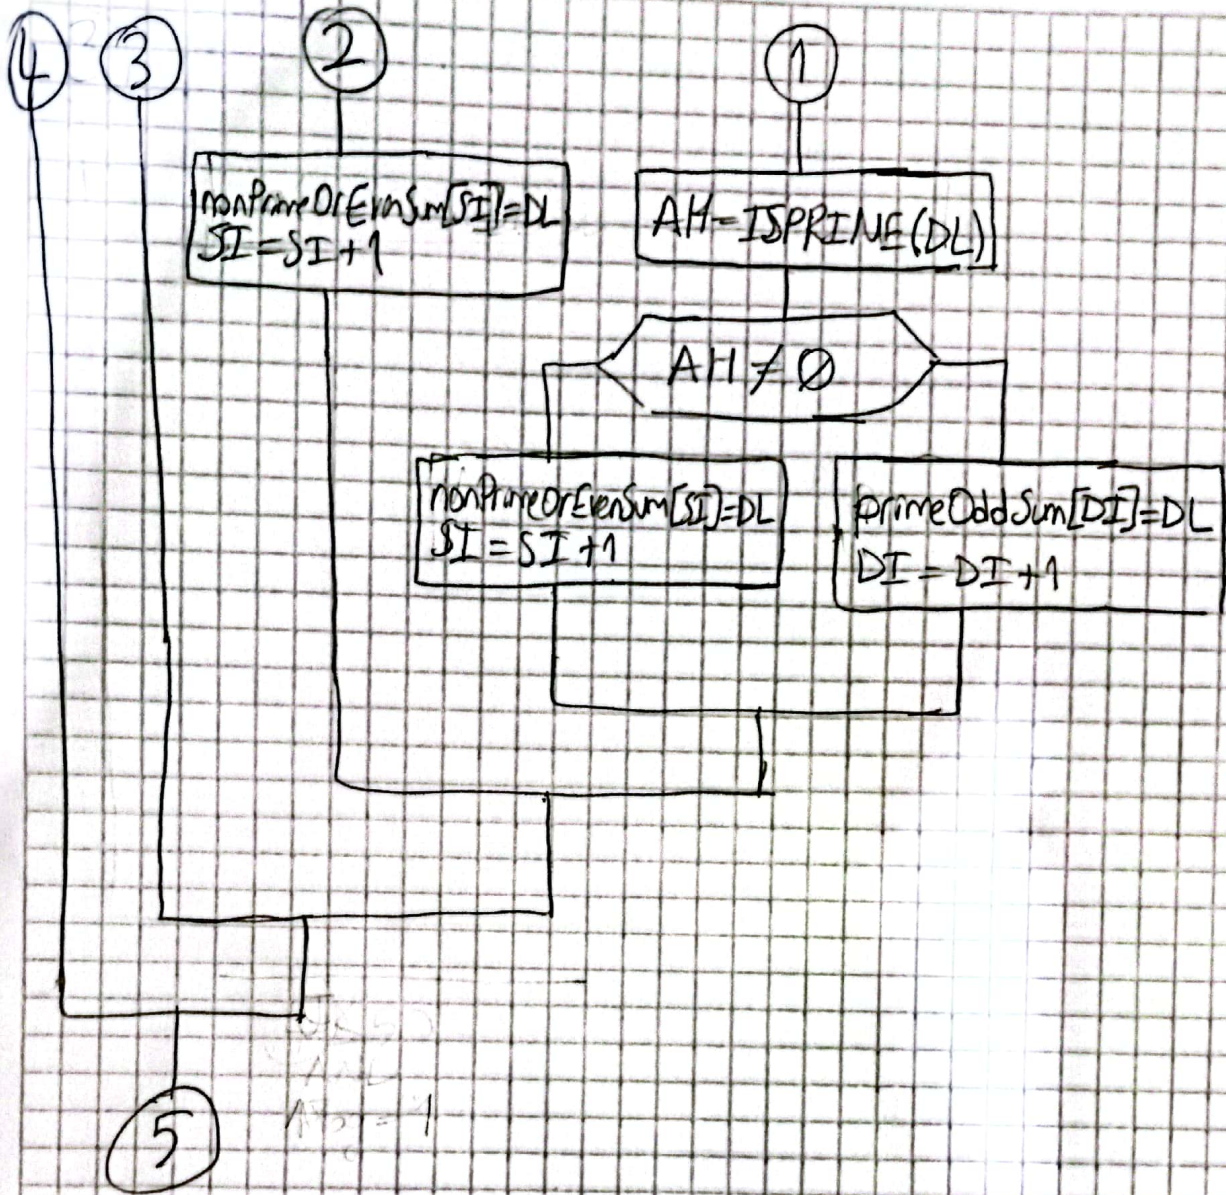 4
3
2
1
nonPrimeOrEvenSum[SI]=DL
SI=SI+1
AH=ISPRIME(DL)
AH≠Ø
nonPrimeOrEvenSum[SI]=DL
SI=SI+1
primeOddSum[DI]=DL
DI=DI+1
5